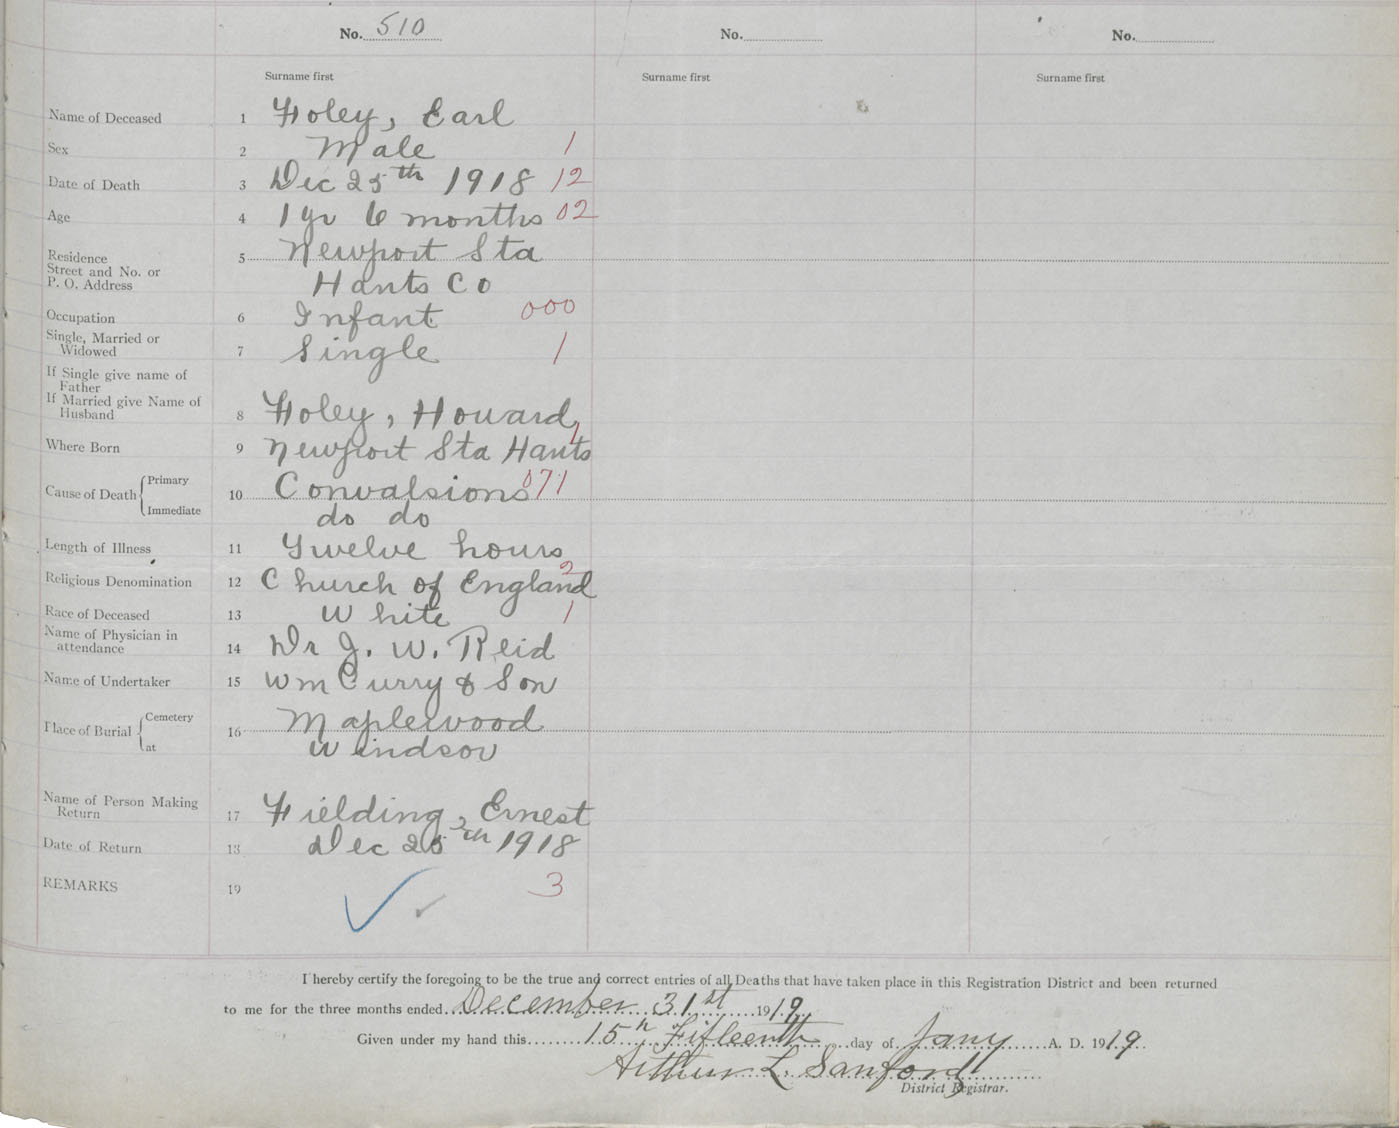 No. 510 No. No.
Surname first Surname first Surname first
Name of Deceased 1 Foley, Earl
Sex 2 Male 1
Date of Death 3 Dec 25th 1918 12
Age 4 1 yr 6 months 02
Residence 5 Newport Sta
Street and No. or
P. O. Address Hants Co
Occupation 6 Infant 000
Single, Married or
Widowed 7 Single 1
If Single give name of
Father
If Married give Name of
Husband 8 Foley, Howard
Where Born 9 Newport Sta Hants 1
Cause of Death { Primary
Immediate 10 Convalsions 071
do do
Length of Illness 11 Twelve hours
Religious Denomination 12 Church of England 2
Race of Deceased 13 White 1
Name of Physician in
attendance 14 Dr J. W. Reid
Name of Undertaker 15 Wm Curry & Son
Place of Burial { Cemetery
at 16 Maplewood
Windsor
Name of Person Making
Return 17 Fielding, Ernest
Date of Return 18 Dec 25th 1918
REMARKS 19 3
I hereby certify the foregoing to be the true and correct entries of all Deaths that have taken place in this Registration District and been returned
to me for the three months ended December 31st 1919
Given under my hand this 15th Fifteenth day of Jany A. D. 1919
Arthur L. Sanford
District Registrar.